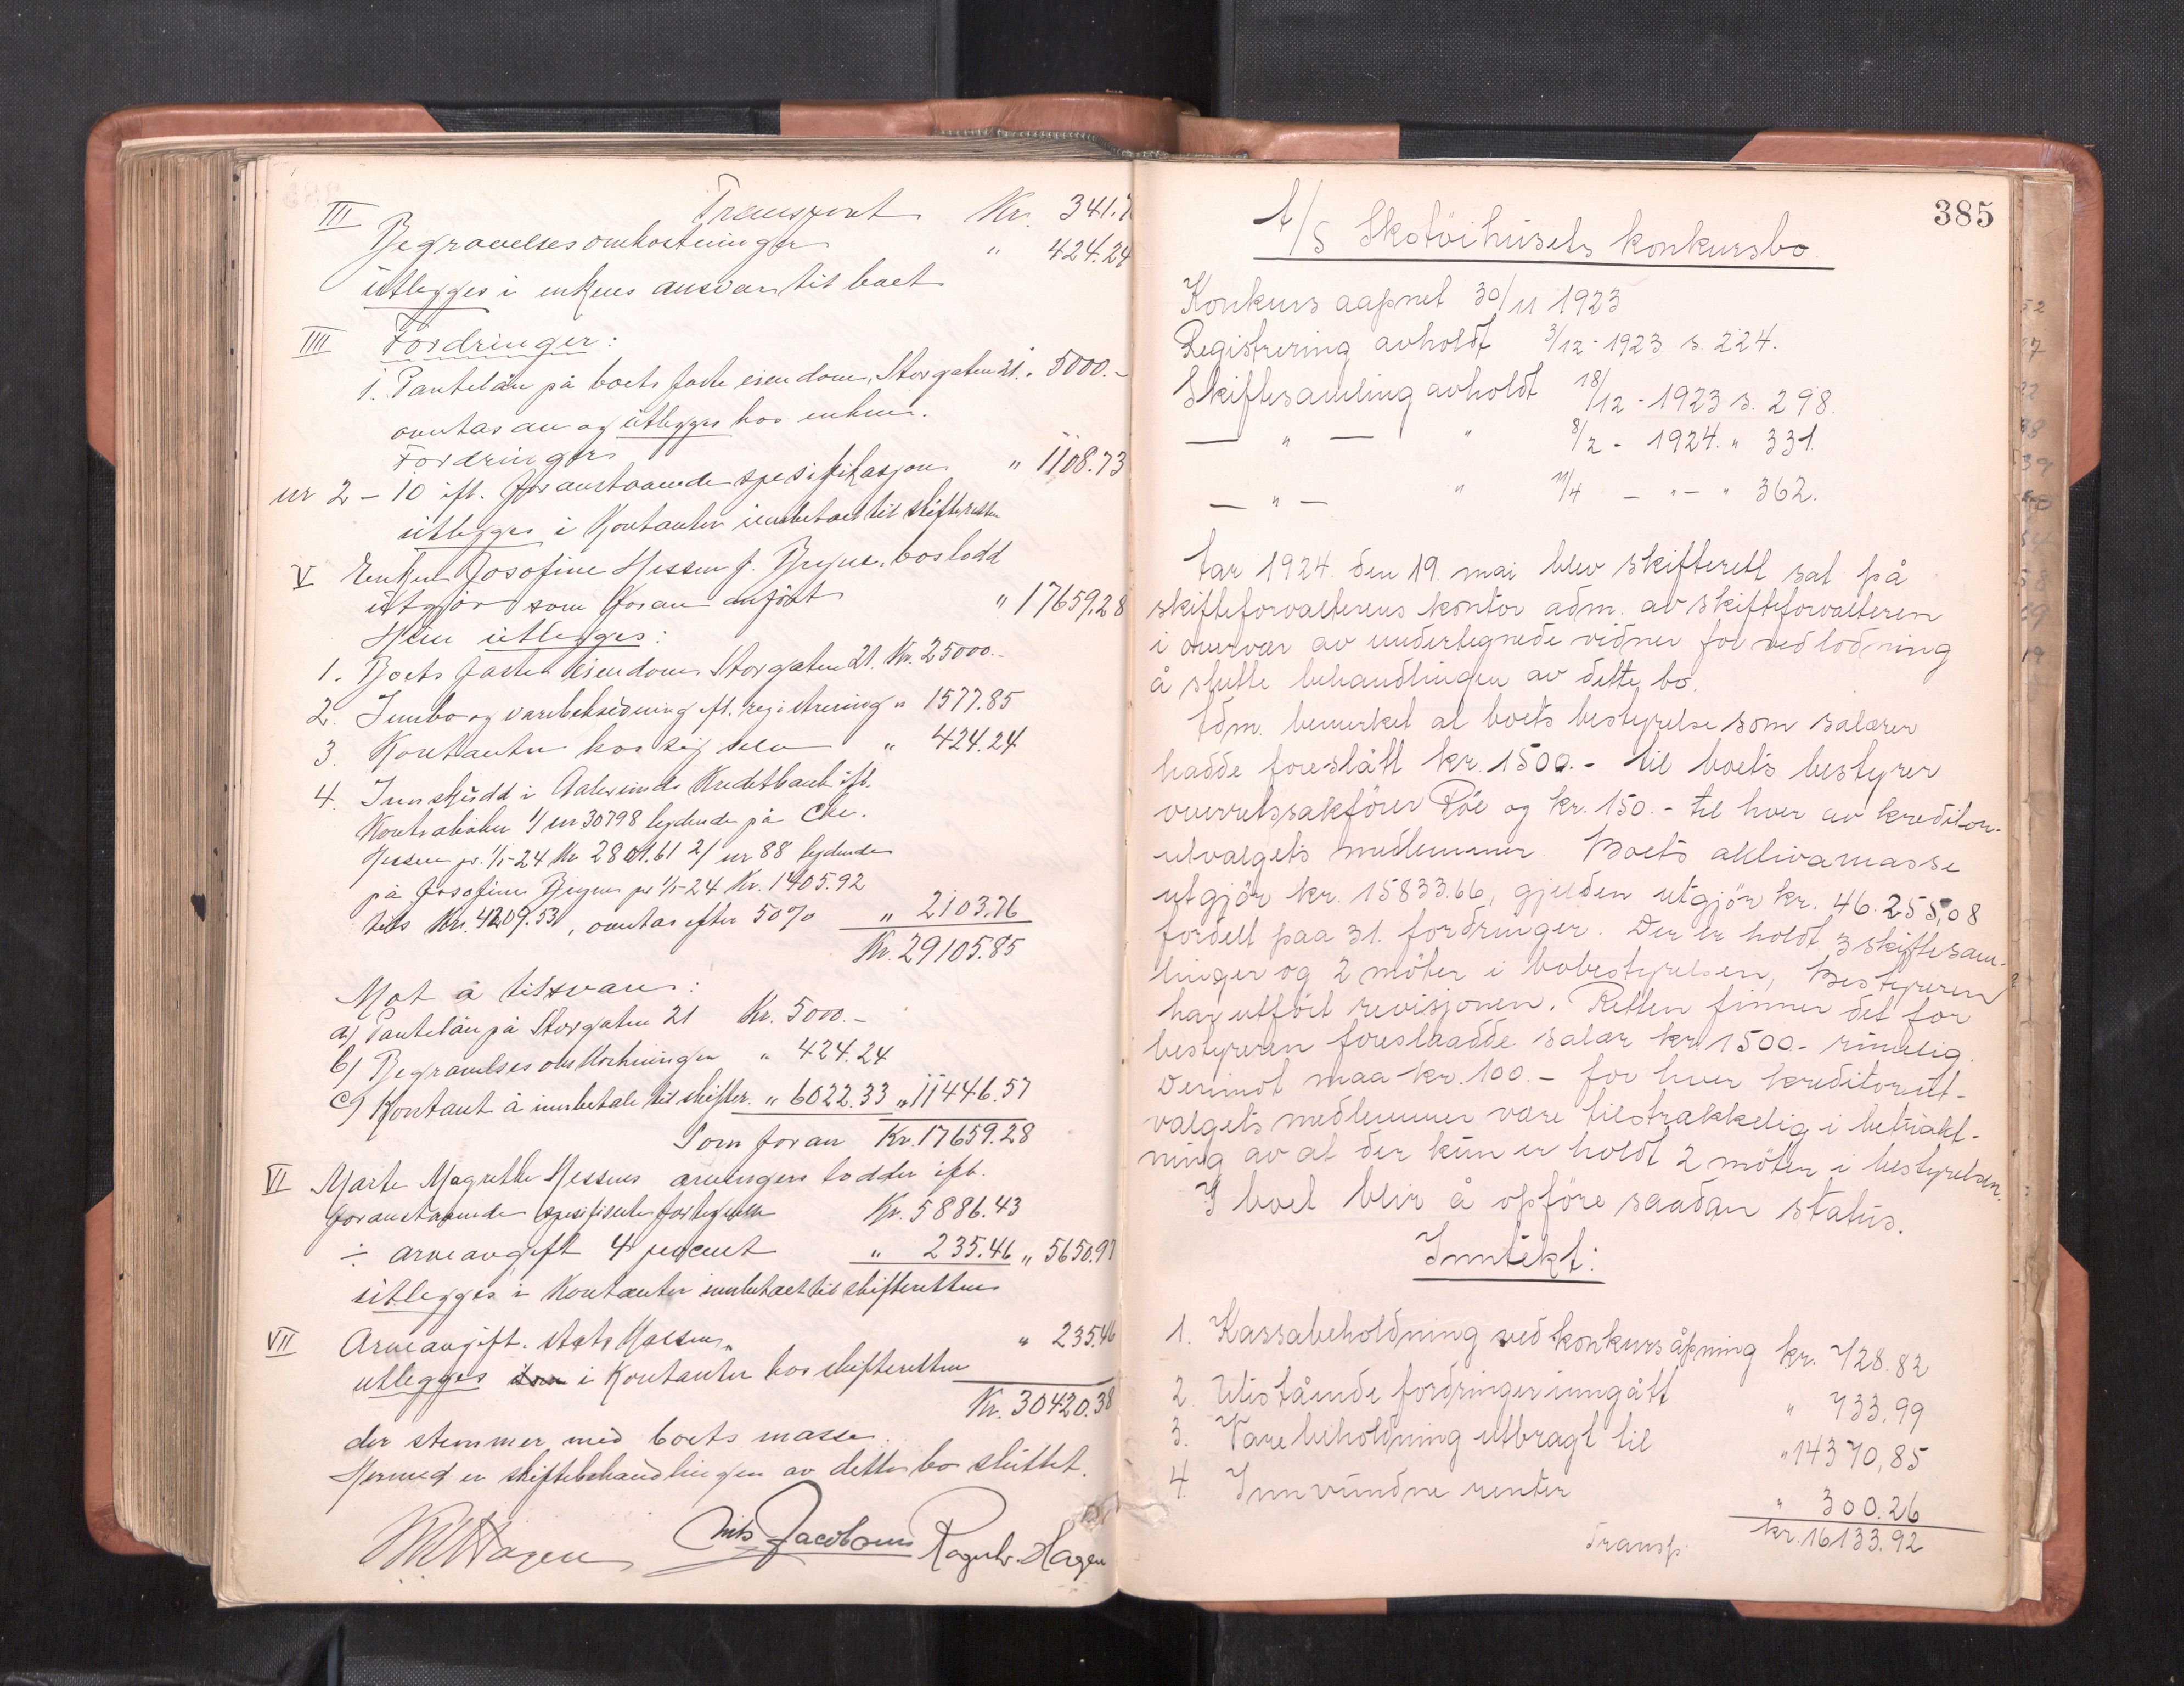 Transport Kr. 341.7
III Begravelsesomkostninger " 424.24
utlegges i enkens ansvar til boet
IIII Fordringer:
1. Pantelån på boets faste eiendom, Storgaten 21. " 5000.-
overtas av og utlegges hos enken.
Fordringer
nr 2 – 10 ift. foranstaaende spesifikasjon " 1108.73
utlegges i Kontanter innbetalt til skifteretten
V Enken Josofine Nessen f. Bryns, boslodd
utgjør som foran anført " 17659.28
Hun utlegges:
1. Boets faste eiendom Storgaten 21. Kr. 25000.-
2. Innbo og varebeholdning ift. registrering " 1577.85
3. Kontanter hos sig selv " 424.24
4. Innskudd i Aalesunds Kreditbank ift.
Kontrabøker 1/ nr 30798 lydende på Chr.
Nessen pr. 1/1-24 Kr 2801.61 2/ nr 88 lydende
på Josofine Bryns pr 1/1-24 Kr. 1405.92
tils Kr. 4209.53, overtas efter 50% " 2103.76
Kr. 29105.85
Mot å tilsvare:
a) Pantelån på Storgaten 21 Kr. 5000.-
b) Begravelsesomkostninger " 424.24
c) Kontant å innbetale til skifter. " 6022.33 " 11446.57
Som foran Kr. 17659.28
VI Marte Magrethe Nessens arvingers lodder ift.
foranstaaende spesifiserte Kr. 5886.43
÷ arveavgift 4 percent " 235.46 " 5650.97
utlegges i Kontanter innbetalt til skifteretten
VII Arveavgift. stats Kassen " 235.46
utlegges i Kontanter hos skifteretten
Kr. 30420.38
der stemmer med boets masse.
Hermed er skiftebehandlingen av dette bo sluttet.
Hagen Nils Jacobsen Ragnv. Hagen
385
A/S Skotöihusets konkursbo.
Konkurs aapnet 30/11 1923
Registrering avholdt 3/12-1923 s. 224.
Skiftesamling avholdt 18/12-1923 s. 298.
— " — " 8/2 - 1924. " 331.
— " — " 11/4 — " — " 362.
Aar 1924. den 19. mai blev skifterett sat på
skifteforvalterens kontor adm. av skifteforvalteren
i overvær av undertegnede vidner for ved lodning
å slutte behandlingen av dette bo.
Adm. bemerket at boets bestyrelse som salærer
hadde foreslått kr. 1500.- til boets bestyrer
overretssakförer Röe og kr. 150.- til hver av kreditor-
utvalgets medlemmer. Boets aktivamasse
utgjör kr. 15833.66, gjelden utgjör kr. 46.255,08
fordelt paa 31. fordringer. Der er holdt 3 skiftesam-
linger og 2 möter i bobestyrelsen, Bestyreren
har utfört revisjonen. Retten finner det for
bestyreren foreslaadde salær kr 1500.- rimelig.
Derimot maa kr. 100.- for hver kreditorut-
valgets medlemmer være tilstrækkelig i betrakt-
ning av at der kun er holdt 2 möter i bestyrelsen.
I boet blir å opföre saadan status.
Inntekt:
1. Kassabeholdning ved konkursåpning kr. 728.82
2. Utistående fordringer inngått " 733.99
3. Varebeholdning utbragt til " 14370,85
4. Innvundne renter " 300.26
Transp. kr. 16133.92